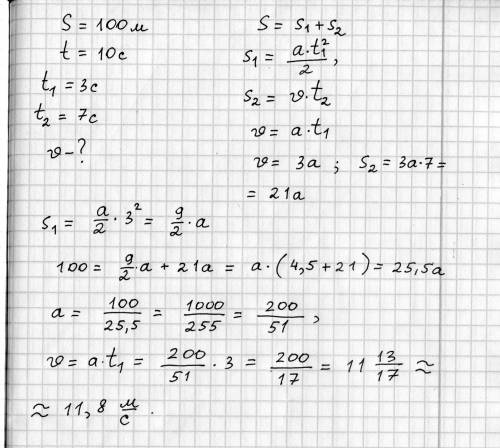 S = 100м
t = 10с
t₁ = 3с
t₂ = 7с
v – ?
S = s₁ + s₂
s₁ = a·t₁²/2 ,
s₂ = v·t₂
v = a·t₁
v = 3a ; s₂ = 3a·7 =
= 21a
s₁ = a/2 · 3² = 9/2 · a
100 = 9/2 · a + 21a = a·(4,5 + 21) = 25,5a
a = 100/25,5 = 1000/255 = 200/51 ,
v = a·t₁ = 200/51 · 3 = 200/17 = 11 13/17 ≈
≈ 11,8 м/с .